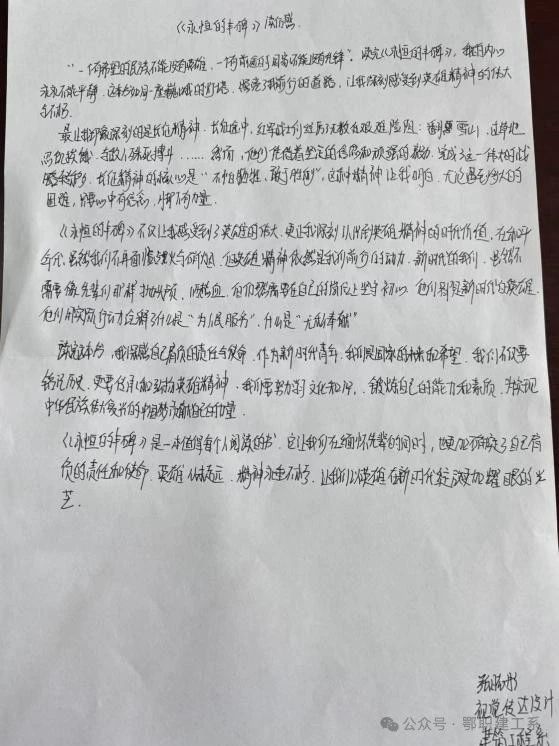 《永恒的丰碑》读后感
"一个有希望的民族不能没有英雄,一个有前途的国家不能没有先锋"。读完《永恒的丰碑》,我的内心
久久不能平静。这本书如同一座巍峨的灯塔,照亮了我前行的道路,让我深刻感受到英雄精神的伟大
与不朽。
最让我印象深刻的是长征精神。长征途中,红军战士们经历了无数的艰难险阻:翻雪山,过草地
忍饥挨饿、与敌人殊死搏斗……然而,他们凭借着坚定的信仰和顽强的毅力,完成了这一伟大的战
略转移。长征精神的核心是"不怕牺牲,敢于胜利",这种精神让我明白,无论遇到多大的
困难,只要心中有信念,就有力量。
《永恒的丰碑》不仅让我感受到了英雄的伟大,更让我深刻认识到英雄精神的时代价值,在和平
年代,虽然我们不再面临战火与硝烟,但英雄精神依然是我们前行的动力。新时代的我们,虽然不
需要像先辈们那样抛头颅、洒热血,但仍然需要在自己的岗位上坚守初心。他们则是新时代的英雄,
他们用实际行动诠释了什么是"为人民服务",什么是"无私奉献"
读完本书,我深感自己肩负的责任与使命,作为新时代青年,我们是国家的未来和希望。我们不仅要
铭记历史,更要传承和弘扬英雄精神。我们要努力学习文化知识,锻炼自己的能力和素质,为实现
中华民族伟大复兴的中国梦贡献自己的力量。
《永恒的丰碑》是一本值得每个人阅读的书,它让我们在缅怀先辈的同时,也更加明确了自己肩
负的责任和使命。英雄从未走远,精神永垂不朽,让我们以英雄在新时代绽放更加耀眼的光
芒。
视觉传达设计
建筑工程系
公众号·鄂职建工系